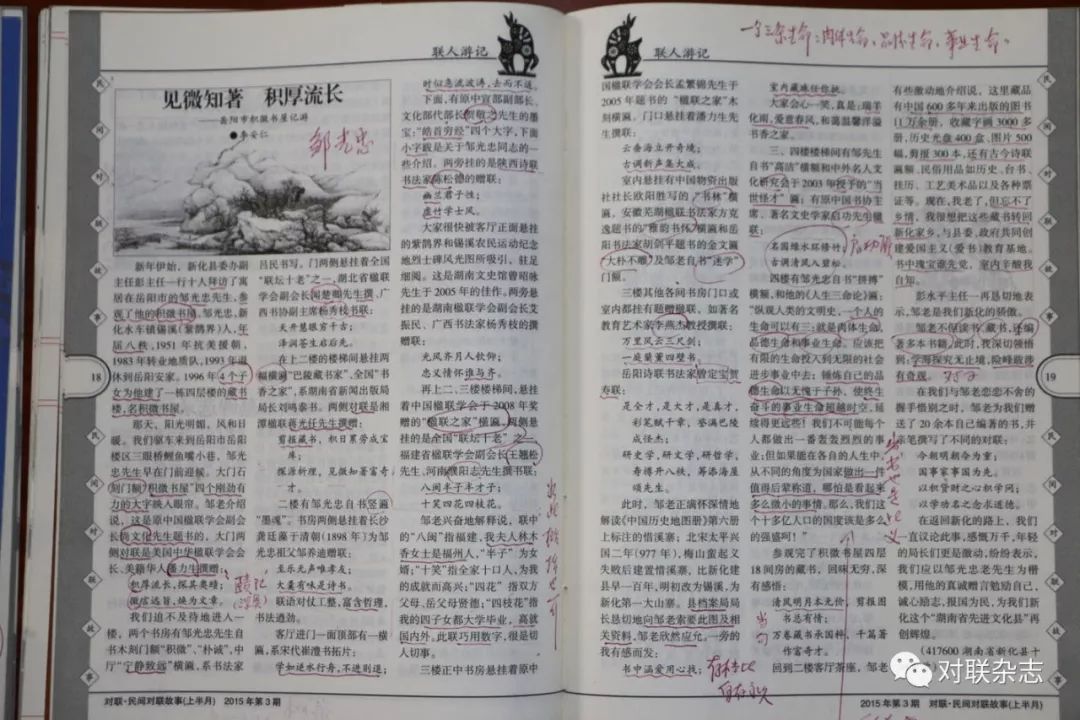 联人游记
见微知著 积厚流长
——岳阳市积微书屋记游
●李安仁
邹光忠
新年伊始，新化县委办副
主任彭主任一行十人拜访了寓
居在岳阳市的邹光忠先生，参
观了他的积微书局。邹先生新
化水车镇锡溪（紫鹊界）人，年
届八秩，1951年抗美援朝，
1983年转业地质队，1993年退
休到岳阳安家。1996年4个子
女为他建了一栋四层楼的藏书
楼，名积微书屋。
那天，阳光明媚，风和日
暖。我们驱车来到岳阳市岳阳
楼区三眼桥鲤鱼嘴小巷，邹光
忠先生早在门前迎候。大门石
刻门额“积微书屋”四个刚劲有
力的大字映入眼帘。邹老介绍
说，这是原中国楹联学会副会
长尚文化先生题书的，大门两
侧对联是美国中华楹联学会会
长、美籍华人潘力生撰赠：
积厚流长，探其奥赜；
微信远旨，焕为文章。
我们迫不及待地进入一
楼，两个书房有邹光忠先生自
书木刻门额“积微”、“朴诚”，中
厅“宁静致远”横匾，系书法家
吕民书写。门两侧悬挂着全国
“联坛十老”之一，湖北省楹联
学会副会长国楚卿先生撰，广
西书协副主席杨秀枝书联：
天开慧眼穷千古；
泽润苍生启后先。
在上二楼的楼梯间悬挂两
幅横匾“巴陵藏书家”、全国“书
香之家”，系湖南省新闻出版局
局长刘鸣泰书。两侧对联是湘
潭楹联蒋光任先生撰赠：
剪报藏书，积日累劳成宝
库；
探源析理，见微知著富奇
才。
二楼有邹光忠自书竖匾
“墨魂”。书房两侧悬挂着长沙
龚廷藻于清朝（1898年）为邹光
忠先祖父邹养迪赠联：
至乐无声唯孝友；
大羹有味是诗书。
联语对仗工整，富含哲理，
书法遒劲。
客厅进门一面顶部有一横
匾，系宋代崔澧书拓片：
学如逆水行舟，不进则退；
时似急流波涛，去而不返。
下面，有原中宣部副部长、
文化部代部长贺敬之先生的墨
宝：“皓首穷经”四个大字，下面
小字跋是关于邹光忠同志的一
些介绍。两旁挂的是陕西诗联
书法家陈松德的赠联：
幽兰君子性；
虚竹学士风。
大家很快被客厅正面悬挂
的紫鹊界和锡溪农民运动纪念
地烈士碑风光图所吸引，驻足
细阅。这是湖南文史馆曾昭咏
先生于2005年的佳作。两旁悬
挂的是湖南楹联学会副会长艾
振民、广西书法家杨秀枝的撰
赠联：
光风齐月人钦仰；
忠义情怀谁与齐。
再上二、三楼楼梯间，悬挂
着中国楹联学会于2008年奖
赠的“楹联之家”横匾，两侧悬
挂的是全国“联坛十老”之一
福建省楹联学会副会长王翘松
先生、河南濮阳志先生撰书联：
八闽半子半才子；
十笑四花四枝花。
邹老兴奋地解释说，联中
的“八闽”指福建，我夫人林木
香女士是福州人，“半子”为女
婿；“十笑”指全家十口人，为我
的成就而高兴；“四花”指双方
父母、岳父母贤德；“四枝花”指
我的四子女都大学毕业，高就
国内外。此联巧用数字，很是切
人切事。
三楼正中书房悬挂着原中
18
对联·民间对联故事(上半月) 2015年第3期
联人游记
一为三条生命：肉体生命、品德生命、事业生命。
国楹联学会会长孟繁锦先生于
2005年题书的“楹联之家”木
刻横匾。门口悬挂着潘力生先
生撰联：
云叁海立开奇境；
古调新声集大成。
室内悬挂有中国物资出版
社社长欧阳胜写的“书林”横
匾，安徽芜湖楹联书法家方克
逸题书的“雅韵书怀”横匾和岳
阳书法家胡剑平题书的金文匾
“大朴不雕”及邹老自书“迷学”
门额。
三楼其他各间书房门口或
室内都挂有题赠楹联，如著名
教育艺术家李燕杰教授撰联：
万里风云三尺剑；
一庭蘭蕙四壁书。
岳阳诗联书法家曾定宝贺
寿联：
是全才，是大才，是真才，
彩笔赋千章，誉满巴陵
成怪杰；
研史学，研文学，研哲学，
寿榑升八秩，筹添海屋
颂先生。
此时，邹老正满怀深情地
解读《中国历史地图册》第六册
上标注的惜溪寨：北宋太平兴
国二年（977年），梅山蛮起义
失败后建置惜溪寨，比新化建
县早一百年，明初改为锡溪，为
新化第一大山寨。县档案局局
长恳切地向邹老索要此图及相
关资料，邹老欣然应允。一旁的
我有感而发：
书中涵爱用心找；
室内藏珠任你挑。
大家会心一笑，真是：瑞羊
化雨，爱意春风，和蔼温馨洋溢
书香之家。
三、四楼楼梯间有邹先生
自书“高洁”横额和中外名人文
化研究会于2003年授予的“当
世怪才”匾；有原中国书协主
席、著名文史学家启功先生楹
联：
名园绿水环修竹；
古调清风入碧松。
启功联
四楼有邹先忠自书“拼搏”
横额，和他的《人生三命论》匾：
“纵观人类的文明史，一个人的
生命可以有三：就是肉体生命，
品德生命和事业生命。应该把
有限的生命投入到无限的社会
进步事业中去；锤炼自己的品
德生命以无愧于子孙，使终生
奋斗的事业生命超越时空，延
续得更远些！我们不可能每个
人都做出一番轰轰烈烈的事
业；但如果能在各自的人生中，
从不同的角度为国家做出一件
值得后辈称道，哪怕是看起来
多么微小的事情。那么，我们这
个十多亿人口的国度该是多么
的强盛呵！”
参观完了积微书屋四层
18间房的藏书，回味无穷，深
有感悟：
清风明月本无价，剪报图
书总有情；
万卷藏书承国粹，千篇著
作富奇才。
回到二楼客厅茶座，邹老
有些激动地介绍说，这里藏品
有中国600多年来出版的图书
11万余册，收藏字画3000多
册，历史光盘400盒、图片500
幅，剪报300本，还有古今诗联
匾额、民俗用品如历史、台书、
挂历、工艺美术品以及各种票
证等。现在，我老了，但忘不了
乡情，我很想把这些藏书转回
新化家乡，与县委、政府共同创
建爱国主义（爱书）教育基地。
书中瑰宝谁先觉，室内辛酸我
自知。
彭水平主任一再恳切地表
示，邹老是我们新化的骄傲。
邹老不但读书、藏书，还编
著多本书籍。此时，我深切领悟
到：学海探究无止境，险峰跋涉
有奇观。
在我们与邹老恋恋不舍的
握手惜别之时，邹老为我们赠
送了20余本自己编著的书，并
亲笔撰写了不同的对联：
今朝明朝今为重；
国事家事国为先。
以积贤时之心积学问；
以学功名之念求道德。
在返回新化的路上，我们
一直议论此事，感慨万千，年轻
的局长们更是激动，纷纷表示，
我们应以邹光忠老先生为楷
模，用他的真诚赠言勉励自己，
诚心励志，报国为民，为我们新
化这个“湖南省先进文化县”再
创辉煌。
(417600 湖南省新化县十
19
2015年第3期 对联·民间对联故事(上半月)
对联杂志